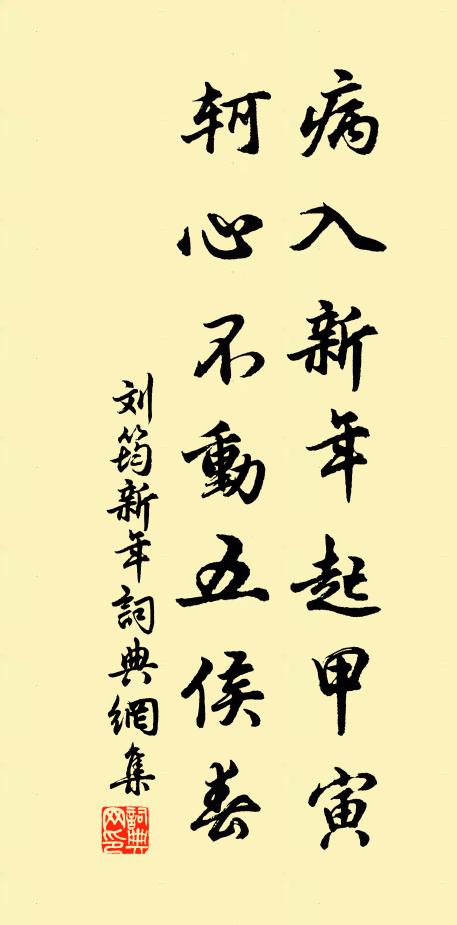 病入新年起甲寅
轲心不動五侯春
刘筠新年詞典網集
詞典网印